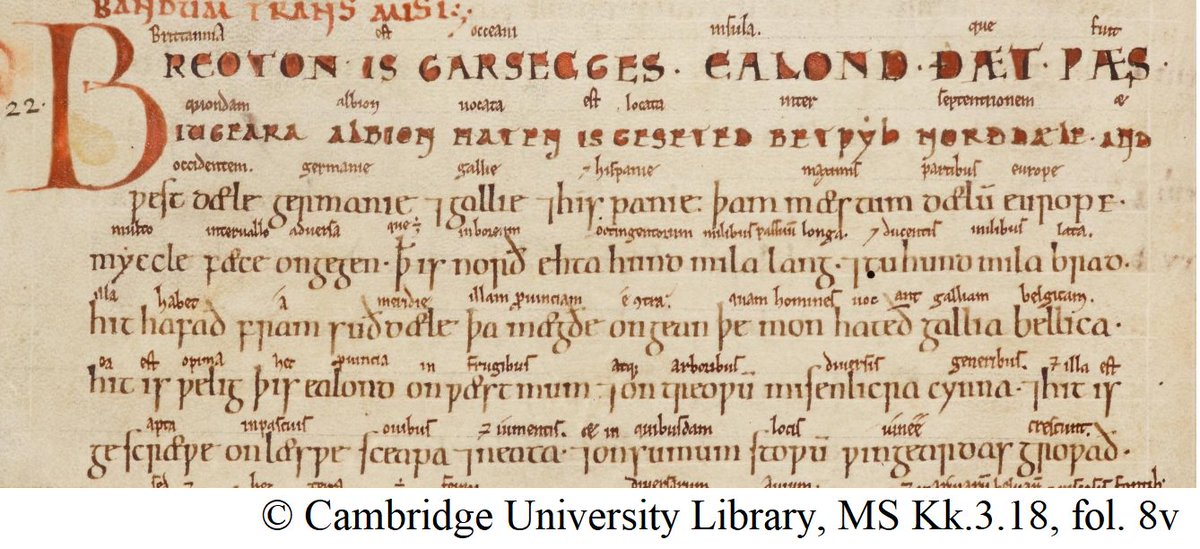 bandum trans misi:,
Brittannia est occeani insula. que fuit
BREOTON IS GARSECGES. EALOND. ÐÆT. ǷÆS.
22.
quondam albion uocata est locata inter septentrionem &
IUGEARA ALBION HATEN IS GESETED BETǷYH NORÐDÆLE. AND
occidentem. germanie gallie ⁊ hispanie maximis partibus europe
ƿest dæle germanie ⁊ gallie ⁊ hispanie. þam mæstum dælū europe.
multo interuallo aduersa que ÷ in boream octingentorum milibus passuum longa. ⁊ ducentis milibus lata.
myccle fæce ongegen. ꝥ is norð ehta hund mila lang. ⁊ tu hund mila brad.
illa habet a meridie illam prouinciam quam homines uocant galliam belgicam.
hit hafað fram suðdæle þa mægðe ongean þe mon hateð gallia bellica.
est opima hec prouincia in frugibus atque arboribus diuersis generibus. ⁊ illa est
hit is ƿelig þis ealond on ƿæstmum ⁊ on treopū misenlicra cynna. ⁊ hit is
apta in pascuis ouibus ⁊ iumentis. & in quibusdam locis uineę crescunt.
gescræpe on læspe sceapa ⁊ neata. ⁊ on sumum stopū ƿingeardas groƿað.
sed hec terra diuersarum auium.
© Cambridge University Library, MS Kk.3.18, fol. 8v